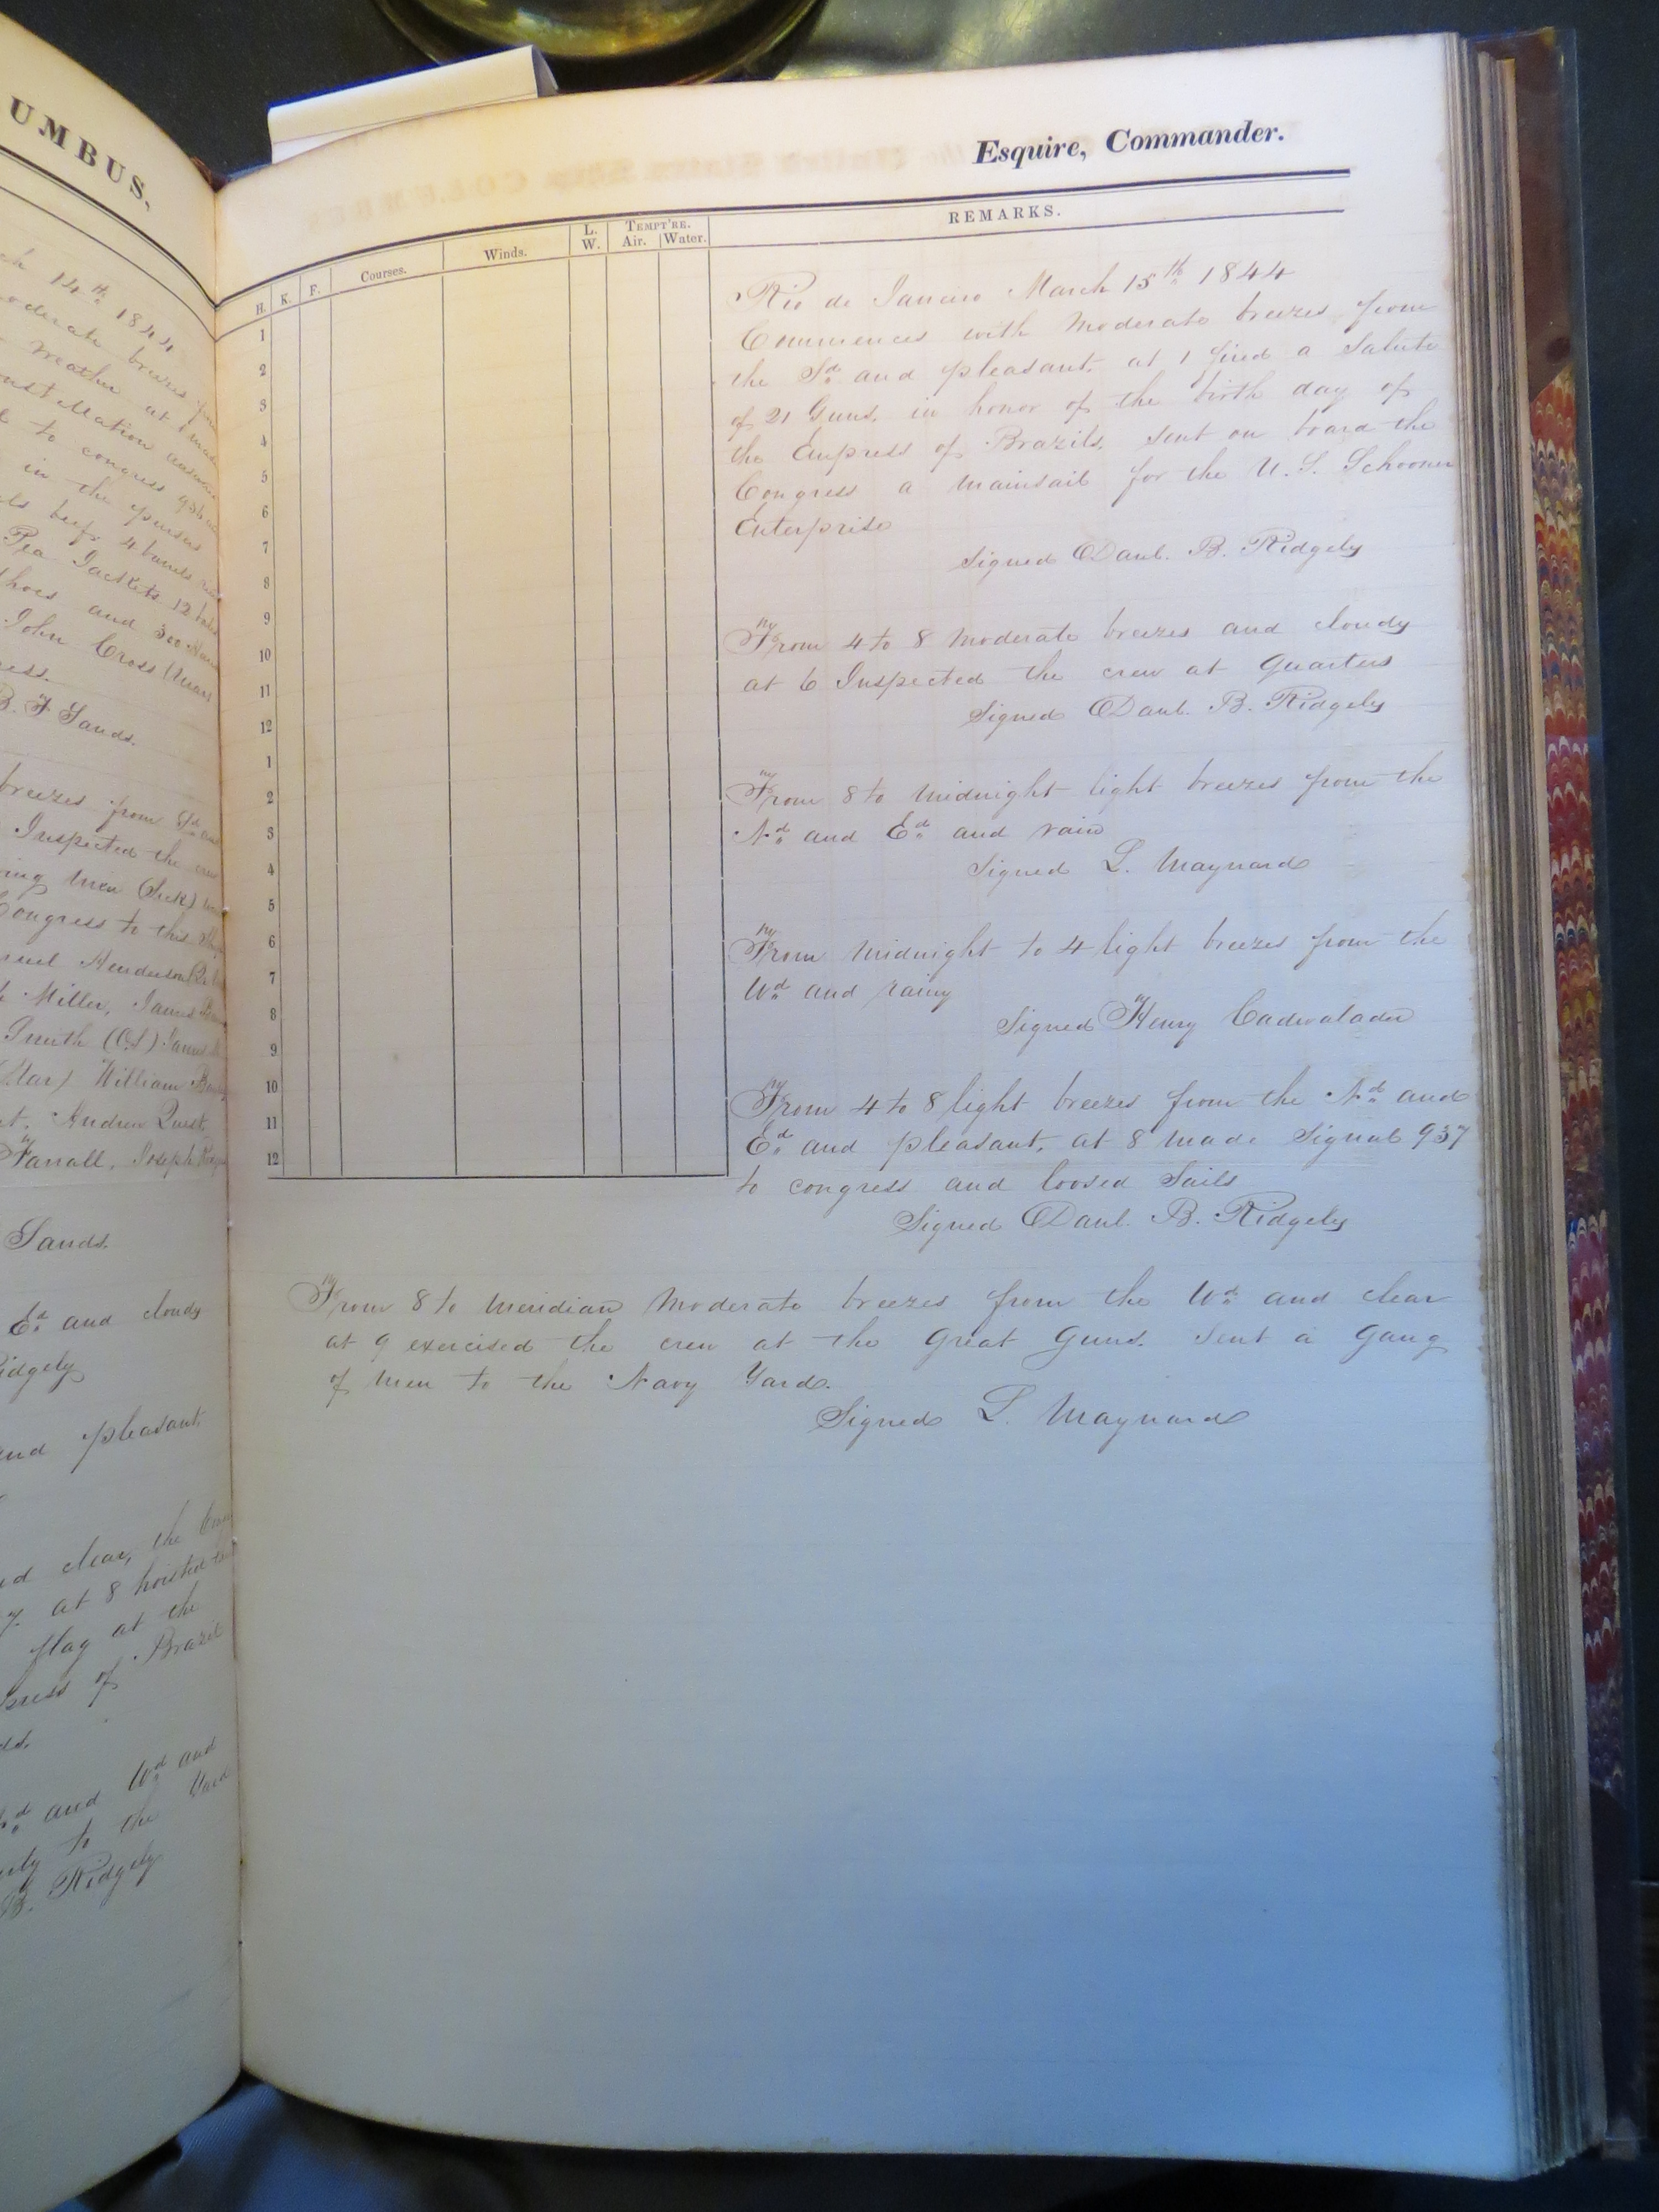 UMBUS.
14th 1844
moderate breezes
Weather at
to congress 936
in the pursers
beef. 4 barrels
Pea Jackets 12
shoes and 300
John Cross
B. F Sands.
breezes from Sd
Inspected the crew
men (Sick)
Congress to this
Henderson
Miller, James
Smith (O.S)
(Mar) William
Andrew Quest,
Farrall, Joseph
Sands.
Ed and cloudy
Ridgely
and pleasant,
clear, the
at 8 hoisted
flag at the
of Brazil
and Wd and
to the Yard
B. Ridgely
Esquire, Commander.
H. K. F. Courses. Winds. L. W. TEMPT'RE. Air. Water. REMARKS.
1
2
3
4
5
6
7
8
9
10
11
12
1
2
3
4
5
6
7
8
9
10
11
12
Rio de Janeiro March 15th 1844
Commences with Moderate breezes from
the Sd and pleasant. at 1 fired a Salute
of 21 Guns. in honor of the birth day of
the Empress of Brazils. sent on board the
Congress a Mainsail for the U. S. Schooner
Enterprise
Signed Danl. B. Ridgely
From 4 to 8 Moderate breezes and cloudy
at 6 Inspected the crew at Quarters
Signed Danl. B. Ridgely
From 8 to Midnight light breezes from the
Nd and Ed and rain
Signed L. Maynard
From Midnight to 4 light breezes from the
Wd and rainy
Signed Henry Cadwalader
From 4 to 8 light breezes from the Nd and
Ed and pleasant, at 8 made Signal 937
to congress and loosed Sails
Signed Danl. B. Ridgely
From 8 to Meridian Moderate breezes from the Wd and clear
at 9 exercised the crew at the Great Guns. Sent a Gang
of Men to the Navy Yard.
Signed L. Maynard